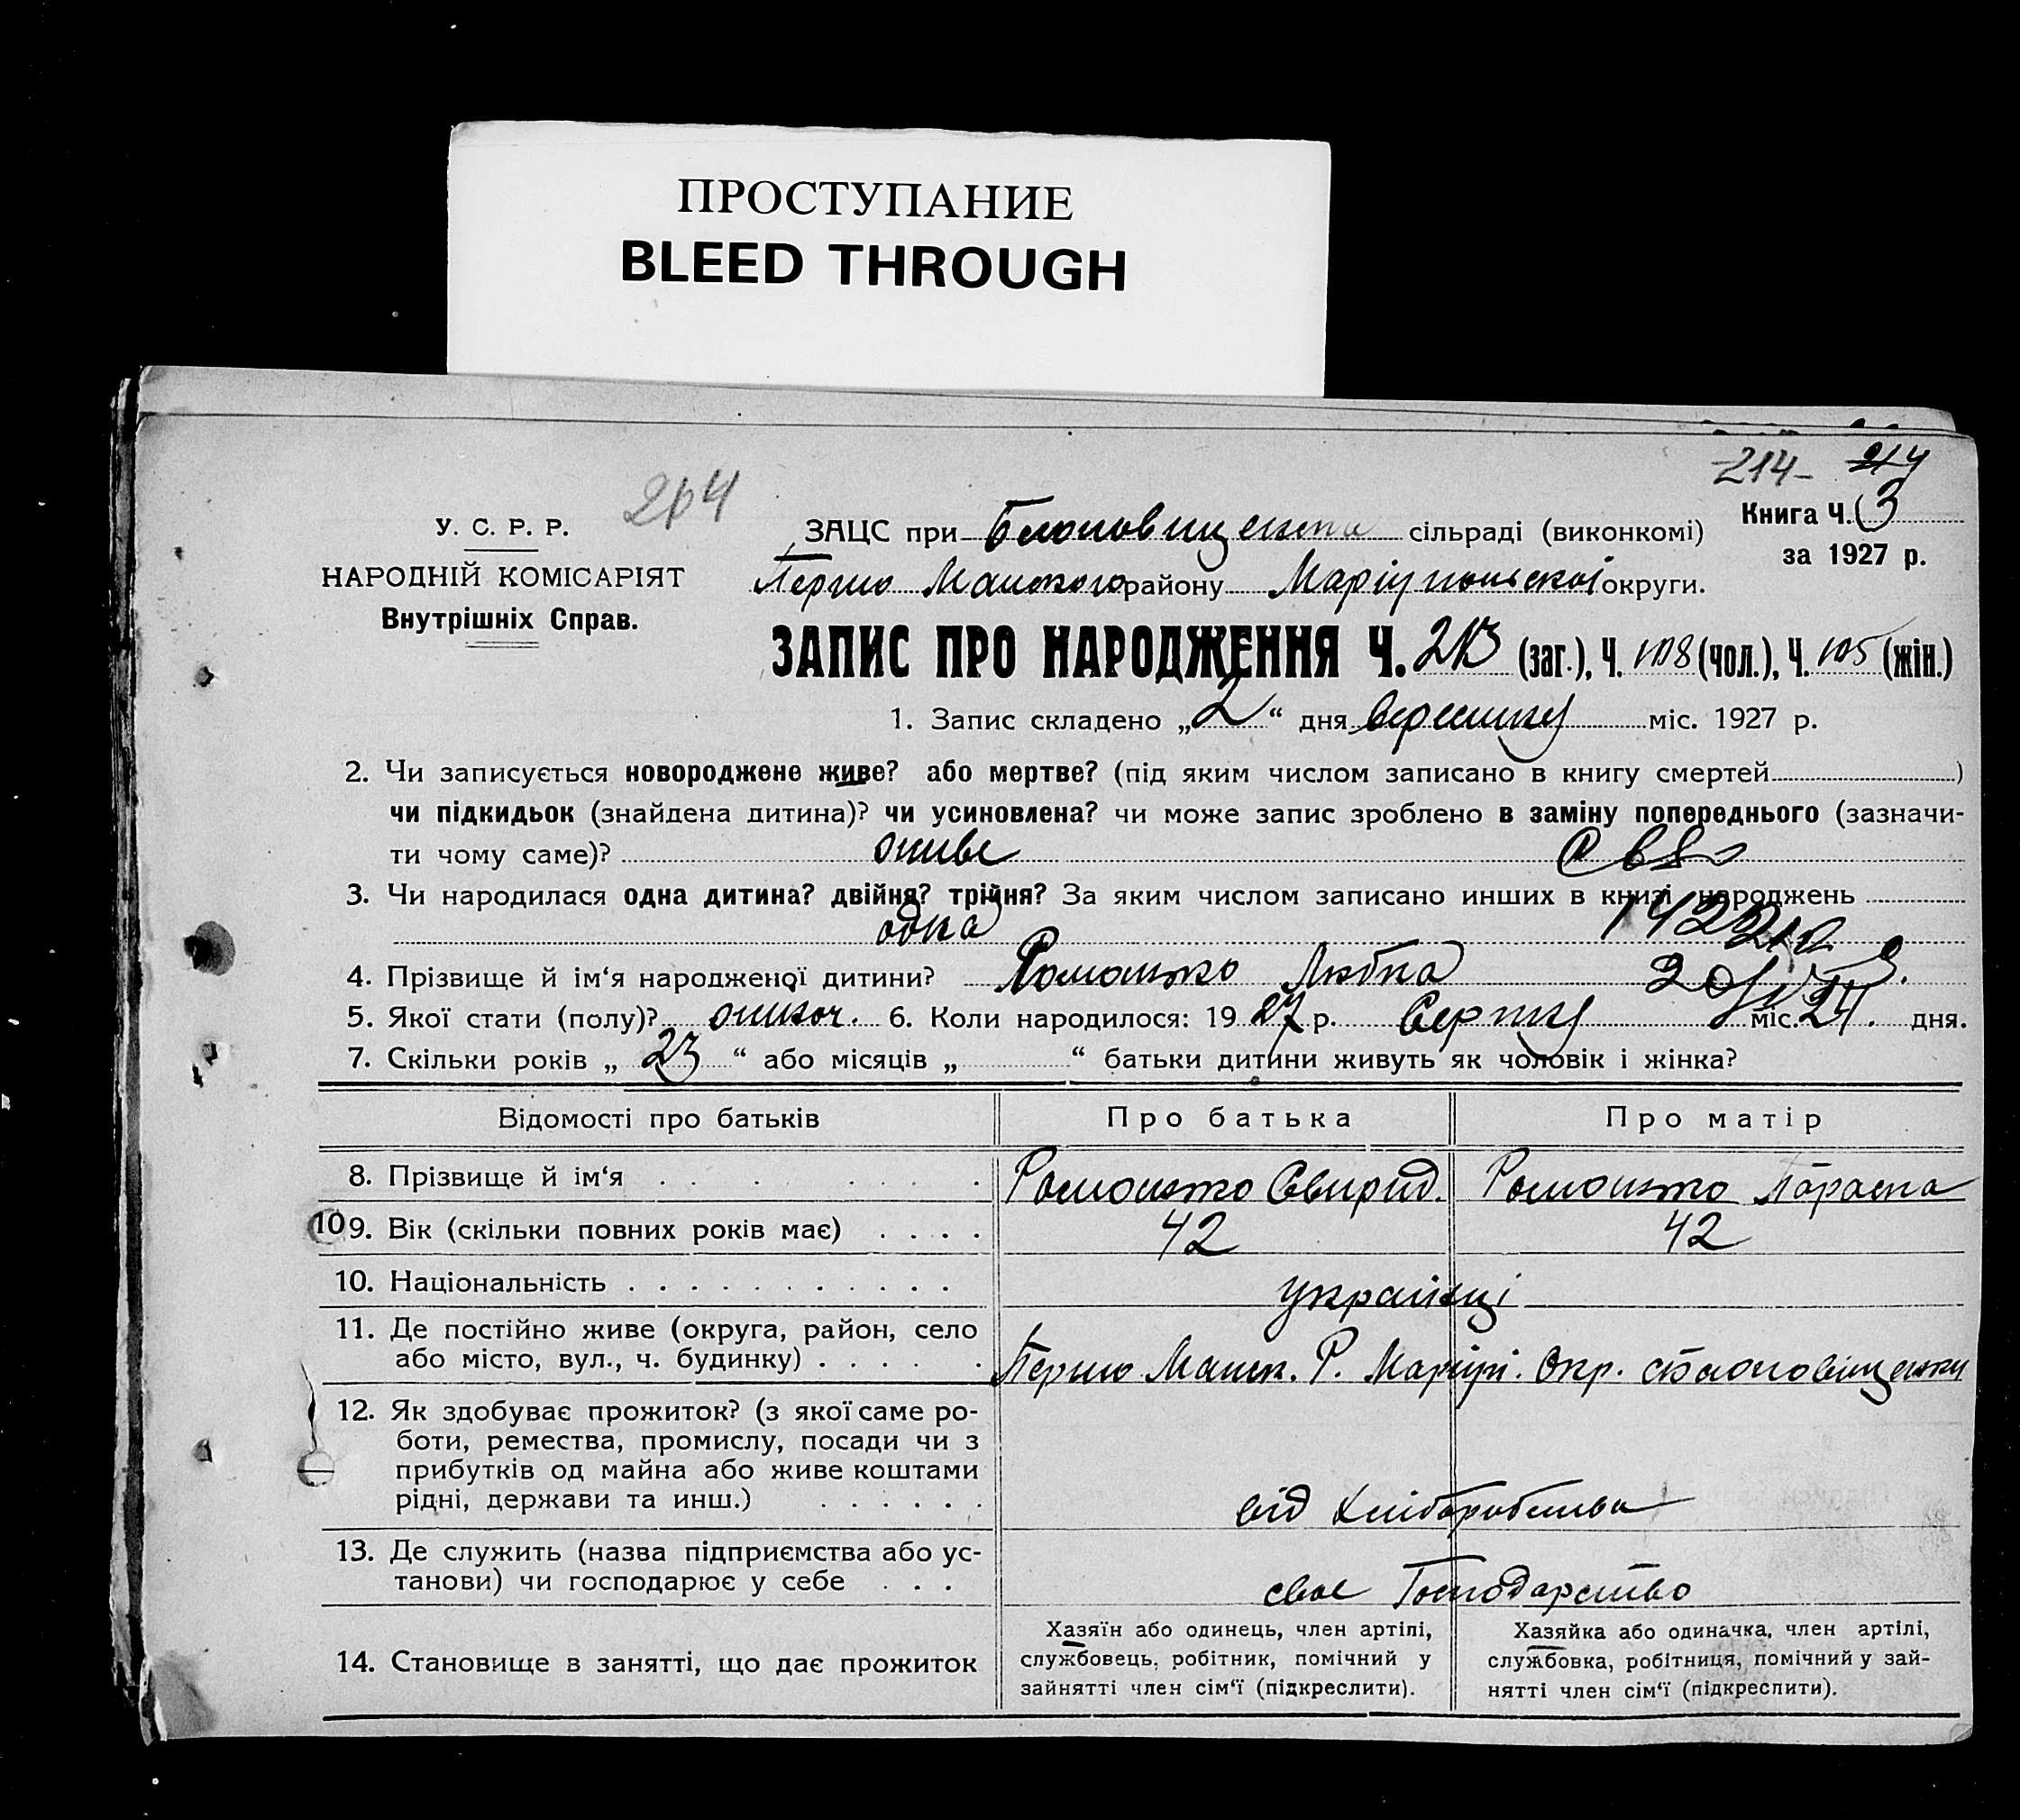 ПРОСТУПАНИЕ
BLEED THROUGH
214- 214
204
Книга Ч. 3
за 1927 р.
У. С. Р. Р.
НАРОДНІЙ КОМІСАРІЯТ
Внутрішніх Справ.
ЗАЦС при сільраді (виконкомі)
Першо Манского району Маріупольскої округи.
ЗАПИС ПРО НАРОДЖЕННЯ Ч. 213 (заг.), Ч. 108 (чол.), Ч. 105 (жін.)
1. Запис складено „2“ дня вересня міс. 1927 р.
2. Чи записується новороджене живе? або мертве? (під яким числом записано в книгу смертей )
чи підкидьок (знайдена дитина)? чи усиновлена? чи може запис зроблено в заміну попереднього (зазначи-
ти чому саме)? живе
3. Чи народилася одна дитина? двійня? трійня? За яким числом записано инших в книзі народжень
одна
4. Прізвище й ім‘я народженої дитини? Романько Любка
5. Якої стати (полу)? жіноч. 6. Коли народилося: 1927 р. Серпня міс. 24. дня.
7. Скільки років „23“ або місяців „ “ батьки дитини живуть як чоловік і жінка?
Відомості про батьків Про батька Про матір
8. Прізвище й ім‘я Романько Свирид. Романько Параска
10 9. Вік (скільки повних років має) 42 42
10. Національність українці
11. Де постійно живе (округа, район, село
або місто, вул., ч. будинку) Першо Манск. Р. Маріуп. Окр.
12. Як здобуває прожиток? (з якої саме ро-
боти, ремества, промислу, посади чи з
прибутків од майна або живе коштами
рідні, держави та инш.) від Хліборобства
13. Де служить (назва підприємства або ус-
танови) чи господарює у себе свое Господарство
14. Становище в занятті, що дає прожиток
Хазяїн або одинець, член артілі,
службовець, робітник, помічний у
зайнятті член сім‘ї (підкреслити).
Хазяйка або одиначка, член артілі,
службовка, робітниця, помічний у зай-
нятті член сім‘ї (підкреслити).